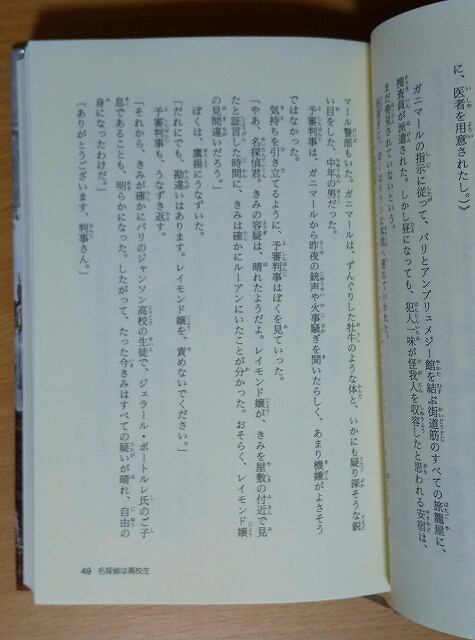 に、医者を用意されたし。》
ガニマールの指示に従って、パリとアンブリュメジー館を結ぶ街道筋のすべての旅籠屋に、
捜査員が派遣された。しかし昼になっても、犯人一味が怪我人を収容したと思われる安宿は、
まだ発見されていないという。
マール警部もいた。ガニマールは、ずんぐりした牡牛のような体と、いかにも疑り深そうな鋭
い目をした、中年の男だった。
予審判事は、ガニマールから昨夜の銃声や火事騒ぎを聞いたらしく、あまり機嫌がよさそう
ではなかった。
気持ちを引き立てるように、予審判事はぼくを見ていった。
「やあ、名探偵君。きみの容疑は、晴れたようだよ。レイモンド嬢が、きみを屋敷の付近で見
たと証言した時間に、きみは確かにルーアンにいたことが分かった。おそらく、レイモンド嬢
の見間違いだろう。」
ぼくは、鷹揚にうなずいた。
「だれにでも、勘違いはあります。レイモンド嬢を、責めないでください。」
予審判事も、うなずき返す。
「それから、きみが確かにパリのジャンソン高校の生徒で、ジェラール・ボートルレ氏のご子
息であることも、明らかになった。したがって、たった今きみはすべての疑いが晴れ、自由の
身になったわけだ。」
「ありがとうございます、判事さん。」
49 名探偵は高校生